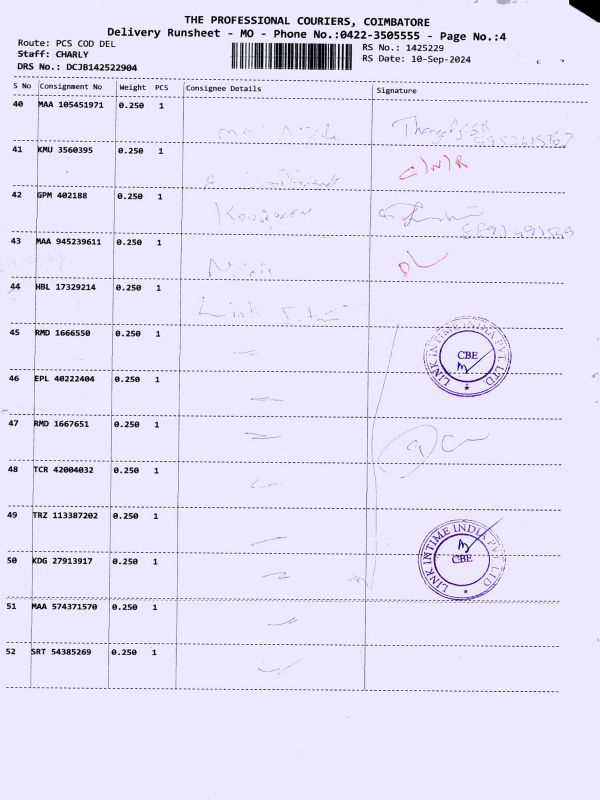 THE PROFESSIONAL COURIERS, COIMBATORE
Delivery Runsheet - MO - Phone No.:0422-3505555 - Page No.:4
Route: PCS COD DEL
Staff: CHARLY
DRS No.: DCJB142522904
RS No.: 1425229
RS Date: 10-Sep-2024
S No Consignment No Weight PCS Consignee Details Signature
40 MAA 105451971 0.250 1
41 KMU 3560395 0.250 1
C)N)R
42 GPM 402188 0.250 1
43 MAA 945239611 0.250 1
44 HBL 17329214 0.250 1
Link
45 RMD 1666550 0.250 1
LINK INTIME INDIA PVT. LTD.
CBE
46 EPL 40222404 0.250 1
47 RMD 1667651 0.250 1
48 TCR 42004032 0.250 1
49 TRZ 113387202 0.250 1
LINK INTIME INDIA PVT LTD
CBE
50 KDG 27913917 0.250 1
51 MAA 574371570 0.250 1
52 SRT 54385269 0.250 1